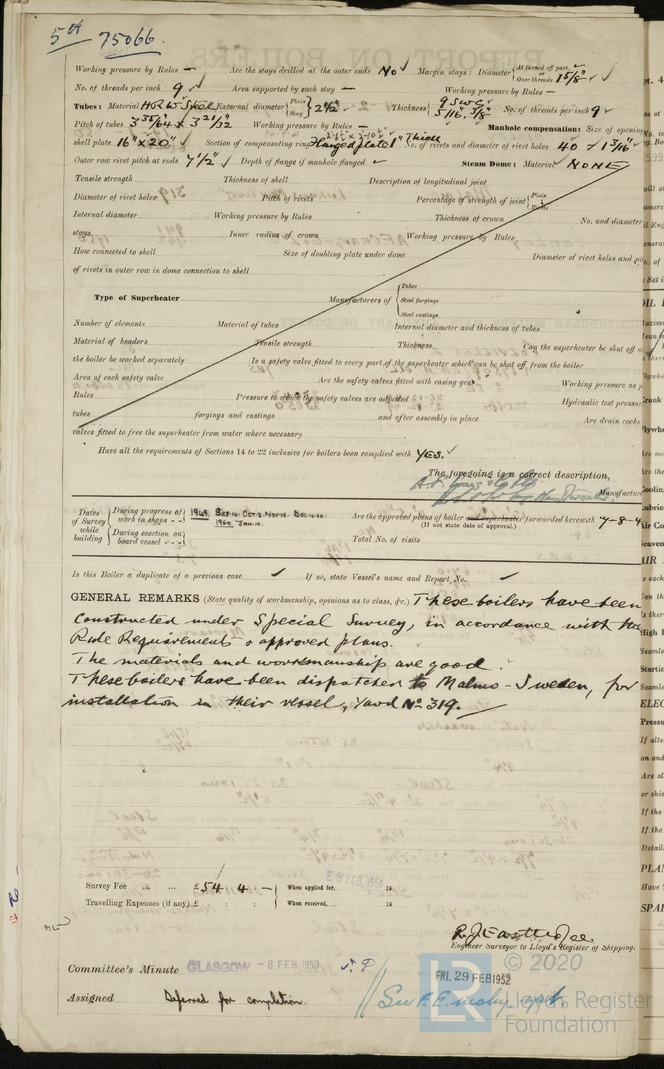 5 A 75066.
Working pressure by Rules — Are the stays drilled at the outer ends No Margin stays: Diameter { At turned off part, Over threads 1 5/8"
No. of threads per inch 9 Area supported by each stay — Working pressure by Rules —
Tubes: Material H R W Steel External diameter { Plain Stay } 2 1/2" Thickness { 9 SWG 5/16, 3/8" No. of threads per inch 9
Pitch of tubes 3 35/64 x 3 21/32 Working pressure by Rules — Manhole compensation: Size of opening
shell plate 16" x 20" Section of compensating ring Flanged plate 1" Thick No. of rivets and diameter of rivet holes 40 1 3/16"
Outer row rivet pitch at ends 7 1/2" Depth of flange if manhole flanged Steam Dome: Material NONE
Tensile strength Thickness of shell Description of longitudinal joint
Diameter of rivet holes Pitch of rivets Percentage of strength of joint { Plate Rivets
Internal diameter Working pressure by Rules Thickness of crown No. and diameter
stays Inner radius of crown Working pressure by Rules
How connected to shell Size of doubling plate under dome Diameter of rivet holes and
of rivets in outer row in dome connection to shell
Type of Superheater Manufacturers of { Tubes Steel forgings Steel castings
Number of elements Material of tubes Internal diameter and thickness of tubes
Material of headers Tensile strength Thickness Can the superheater be shut off
the boiler be worked separately Is a safety valve fitted to every part of the superheater which can be shut off from the boiler
Area of each safety valve Are the safety valves fitted with easing gear Working pressure as
Rules Pressure to which the safety valves are adjusted Hydraulic test pressure
tubes forgings and castings and after assembly in place Are drain cocks
valves fitted to free the superheater from water where necessary
Have all the requirements of Sections 14 to 22 inclusive for boilers been complied with YES.
The foregoing is a correct description,
Manufacturer
Dates of Survey while building { During progress of work in shops - - } 1949. Sep Oct Nov Dec
1950. Jan
{ During erection on board vessel - - - }
Are the approved plans of boiler and superheater forwarded herewith 7-8-4
(If not state date of approval.)
Total No. of visits
Is this Boiler a duplicate of a previous case If so, state Vessel's name and Report No.
GENERAL REMARKS (State quality of workmanship, opinions as to class, &c.) These boilers have been
constructed under Special Survey, in accordance with the
Rule Requirements & approved plans.
The materials and workmanship are good.
These boilers have been dispatched to Malmo - Sweden, for
installation in their vessel, Yard No 319.
Survey Fee ... ... £54 : 4 : — When applied for, 8 FEB 1950 19
Travelling Expenses (if any) £ : : When received, 19
Engineer Surveyor to Lloyd's Register of Shipping.
Committee's Minute GLASGOW - 8 FEB 1950 FRI. 29 FEB 1952
Assigned Deferred for completion.
© 2020
Lloyd's Register
Foundation